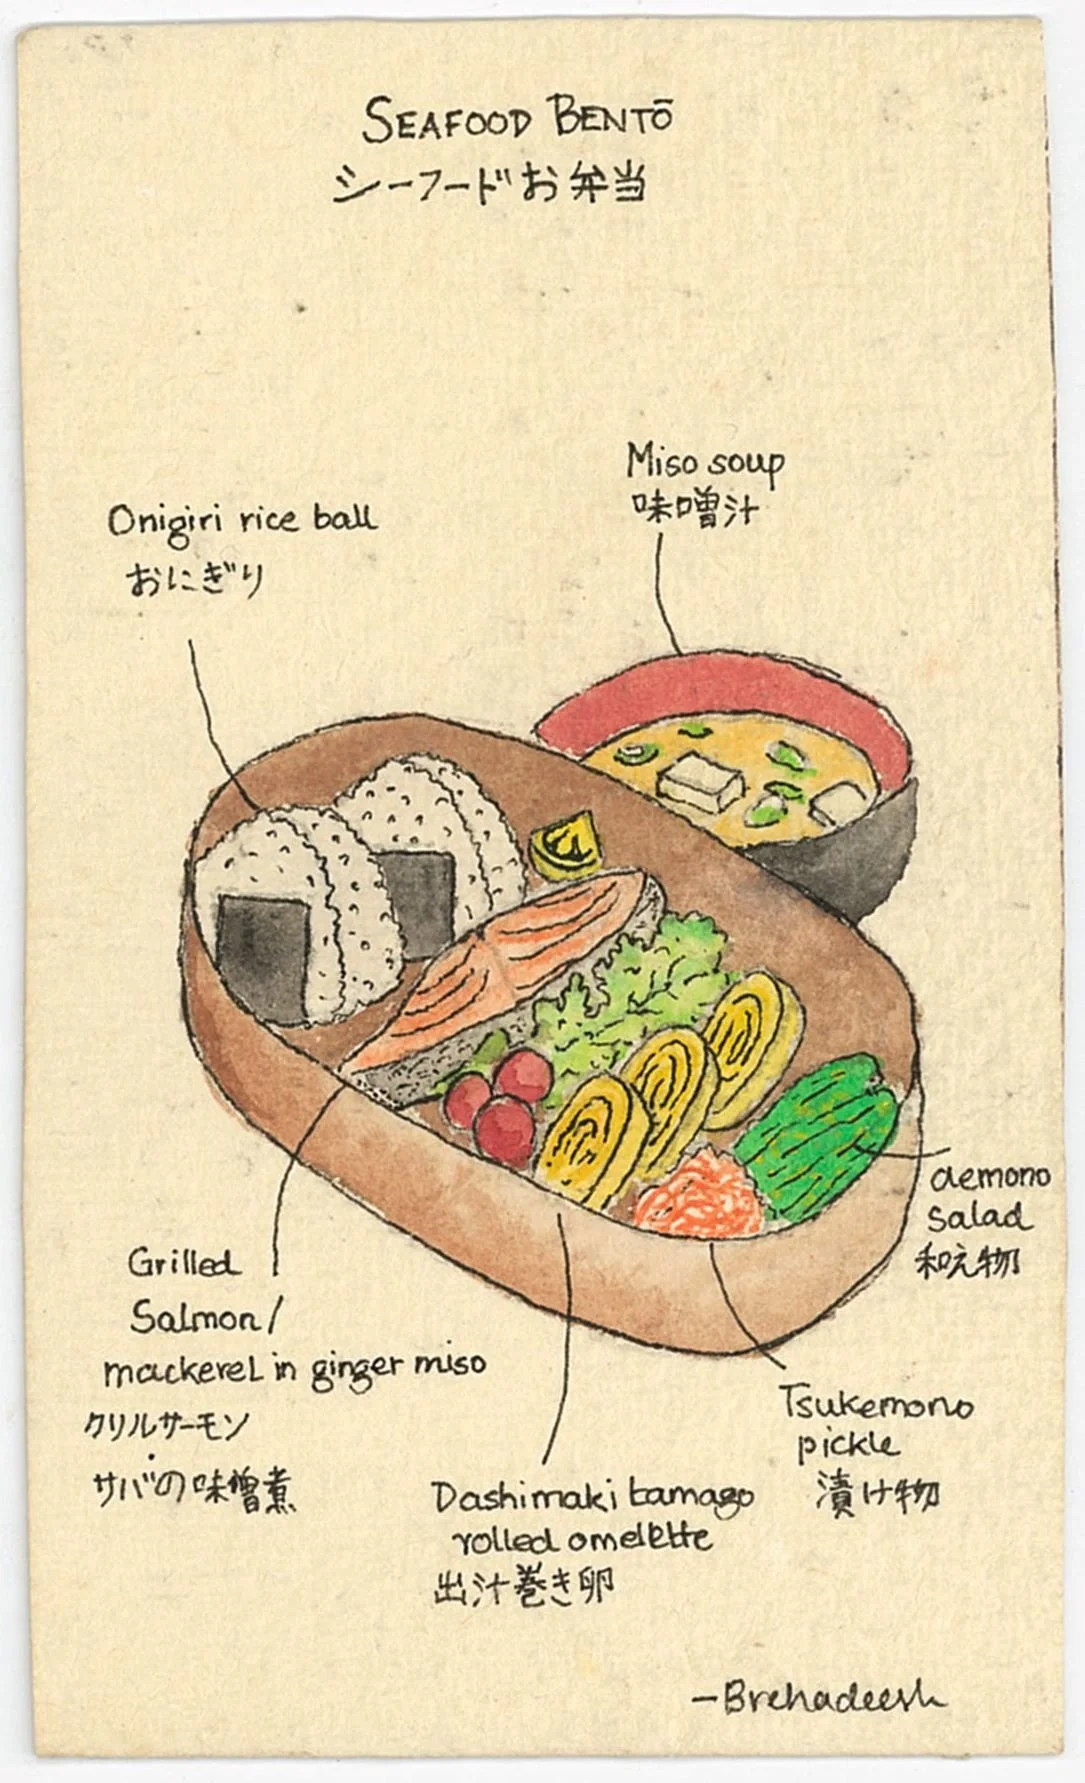 SEAFOOD BENTŌ
シーフードお弁当
Miso soup
味噌汁
Onigiri rice ball
おにぎり
aemono
salad
和え物
Grilled
Salmon/
mackerel in ginger miso
クリルサーモン
・
サバの味噌煮
Tsukemono
pickle
漬け物
Dashimaki tamago
rolled omelette
出汁巻き卵
-Brehadeesh